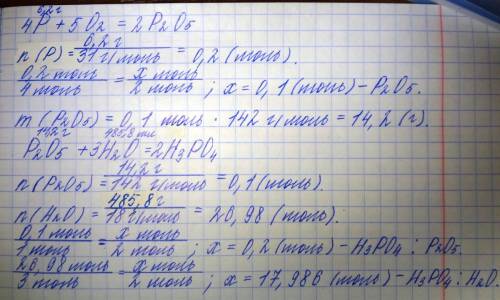 6,2г
4P + 5O2 = 2P2O5
n(P) = 6,2г / 31 г/моль = 0,2 (моль).
0,2 моль / 4 моль = x моль / 2 моль ; x = 0,1 (моль) – P2O5.
m(P2O5) = 0,1 моль · 142 г/моль = 14,2 (г).
14,2г 485,8 мл
P2O5 + 3H2O = 2H3PO4
n(P2O5) = 14,2г / 142 г/моль = 0,1 (моль).
n(H2O) = 485,8г / 18 г/моль = 26,98 (моль).
0,1 моль / 1 моль = x моль / 2 моль ; x = 0,2 (моль) – H3PO4 : P2O5.
26,98 моль / 3 моль = x моль / 2 моль ; x = 17,986 (моль) – H3PO4 : H2O